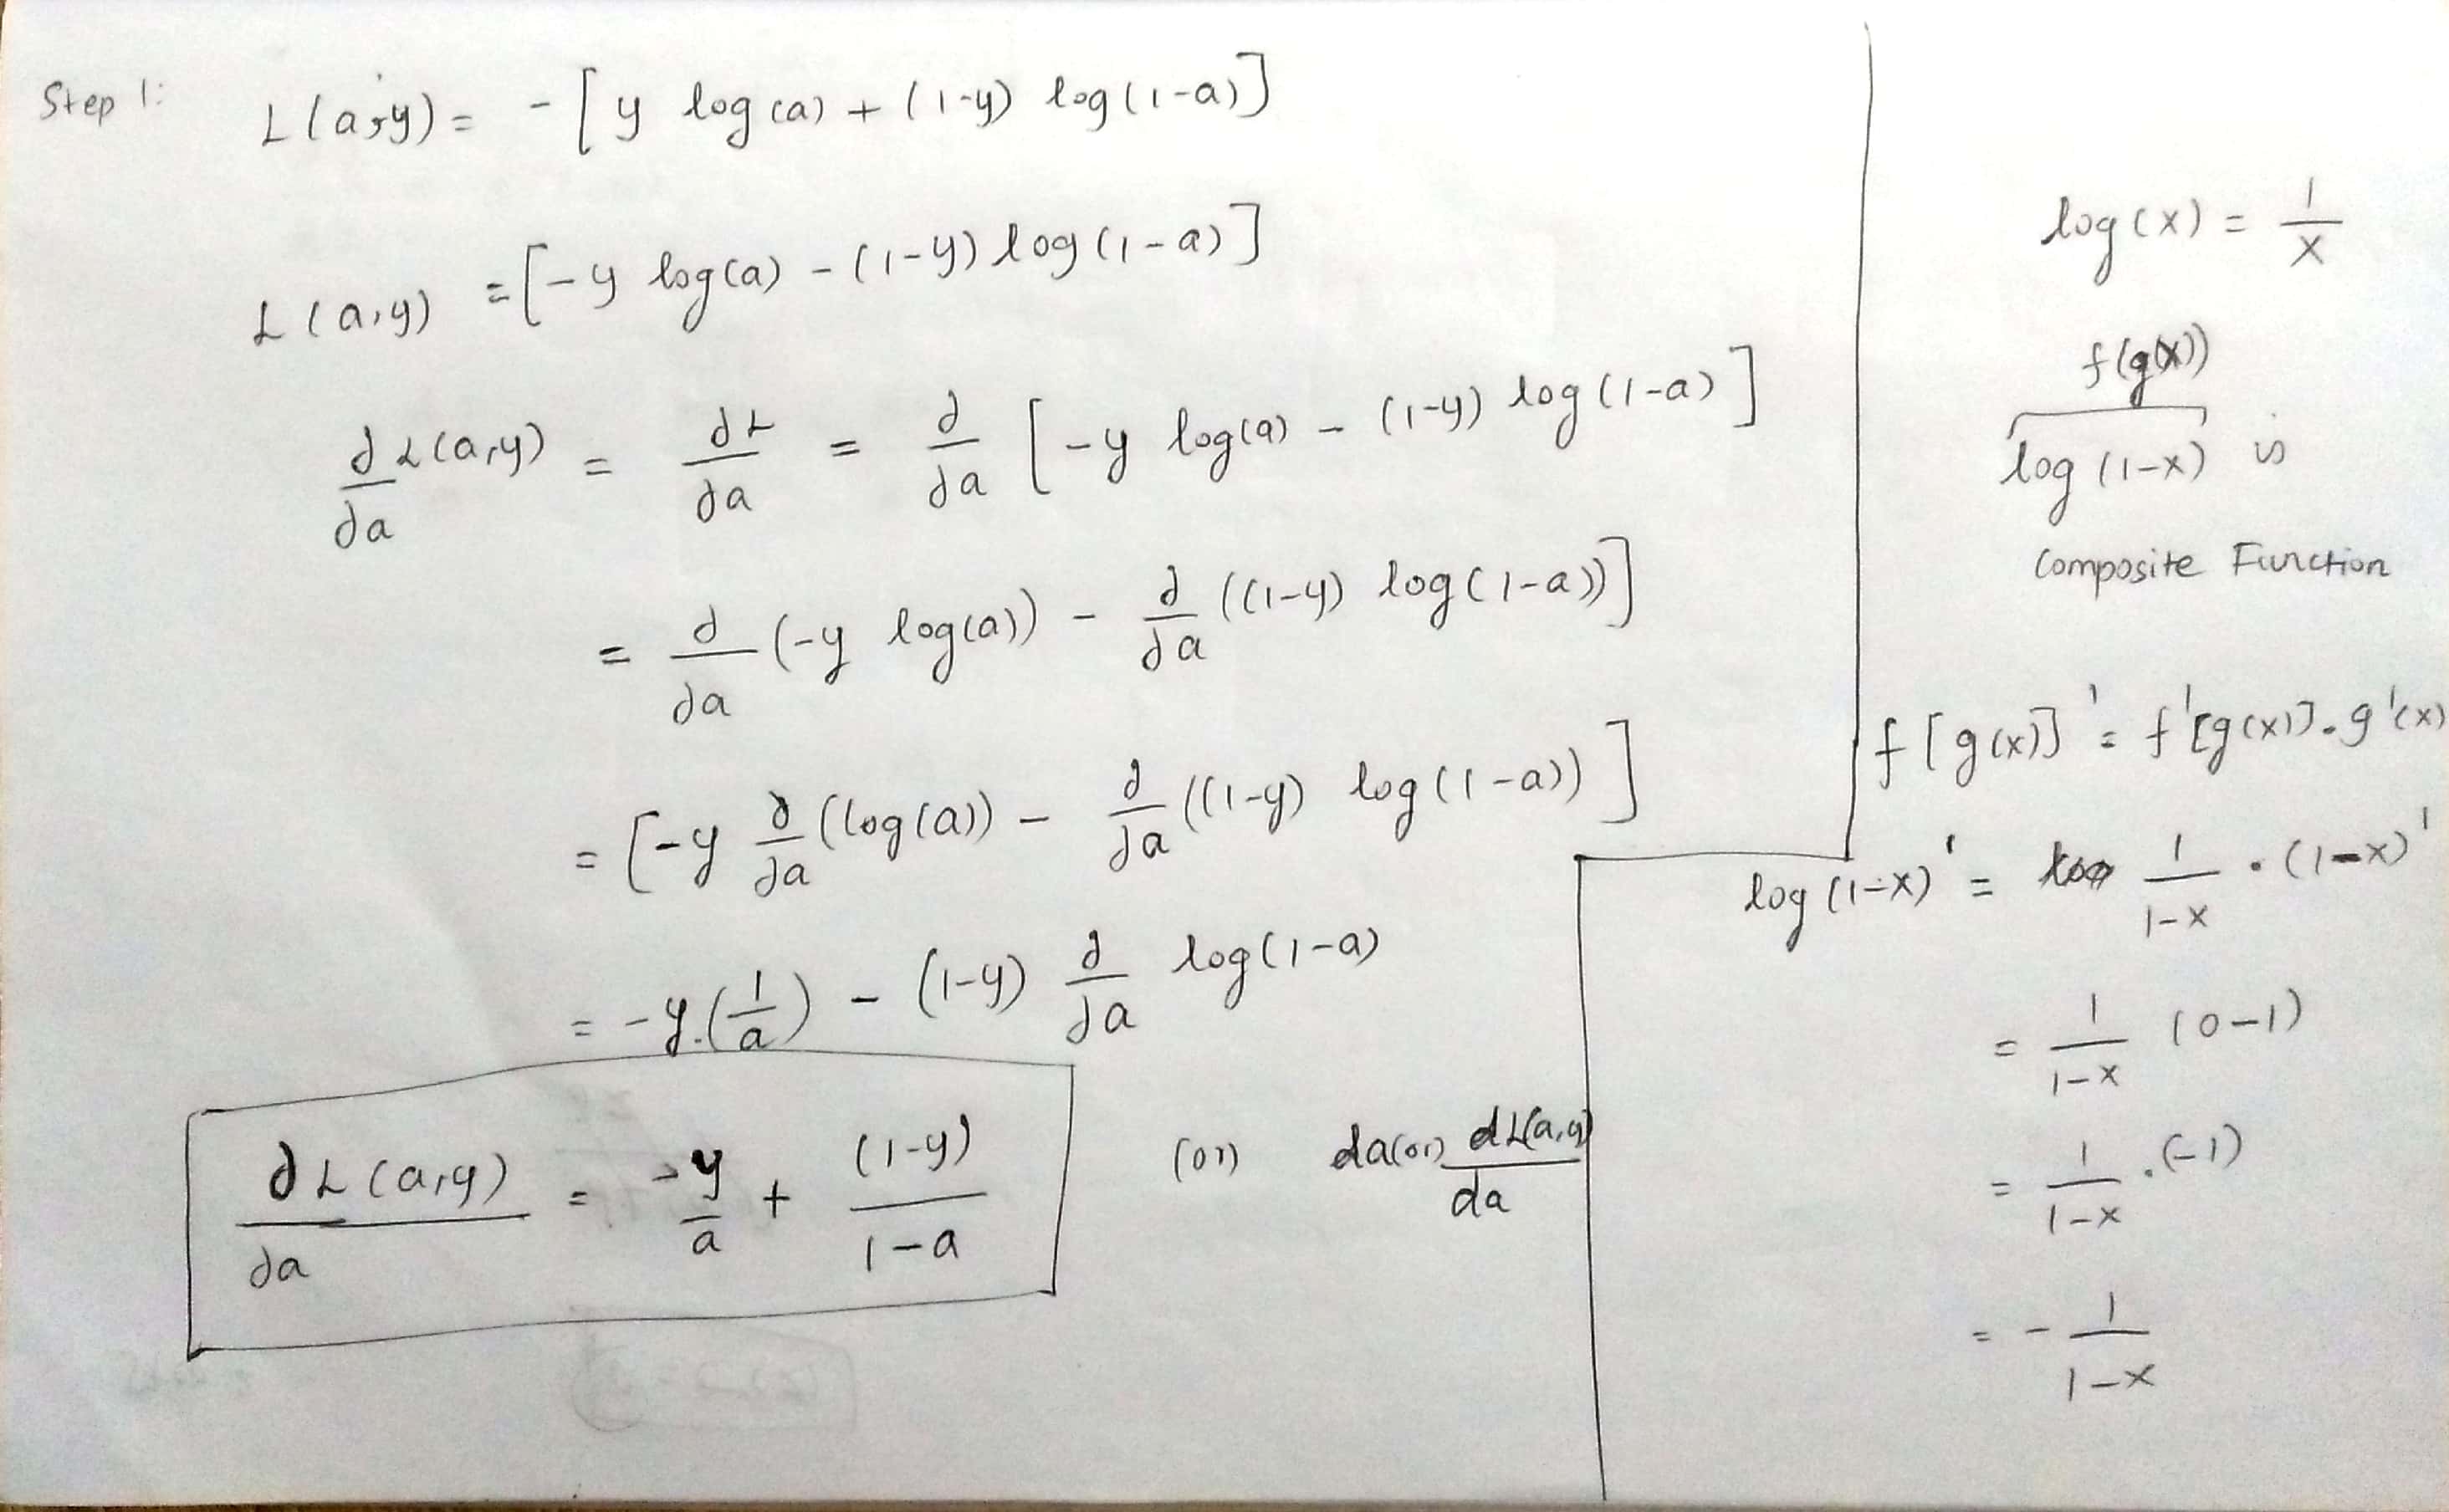 Step 1: L(a,y) = - [ y log(a) + (1-y) log(1-a)]
L(a,y) = [-y log(a) - (1-y) log(1-a)]
∂/∂a L(a,y) = ∂L/∂a = ∂/∂a [-y log(a) - (1-y) log(1-a)]
= ∂/∂a (-y log(a)) - ∂/∂a ((1-y) log(1-a))]
= [-y ∂/∂a (log(a)) - ∂/∂a ((1-y) log(1-a))]
= -y.(1/a) - (1-y) ∂/∂a log(1-a)
∂L(a,y)/∂a = -y/a + (1-y)/1-a (or) da(or) dL(a,y)/da
log(x) = 1/x
f(g(x))
log(1-x) is
Composite Function
f[g(x)]' = f'[g(x)].g'(x)
log(1-x)' = 1/1-x . (1-x)'
= 1/1-x (0-1)
= 1/1-x .(-1)
= - 1/1-x